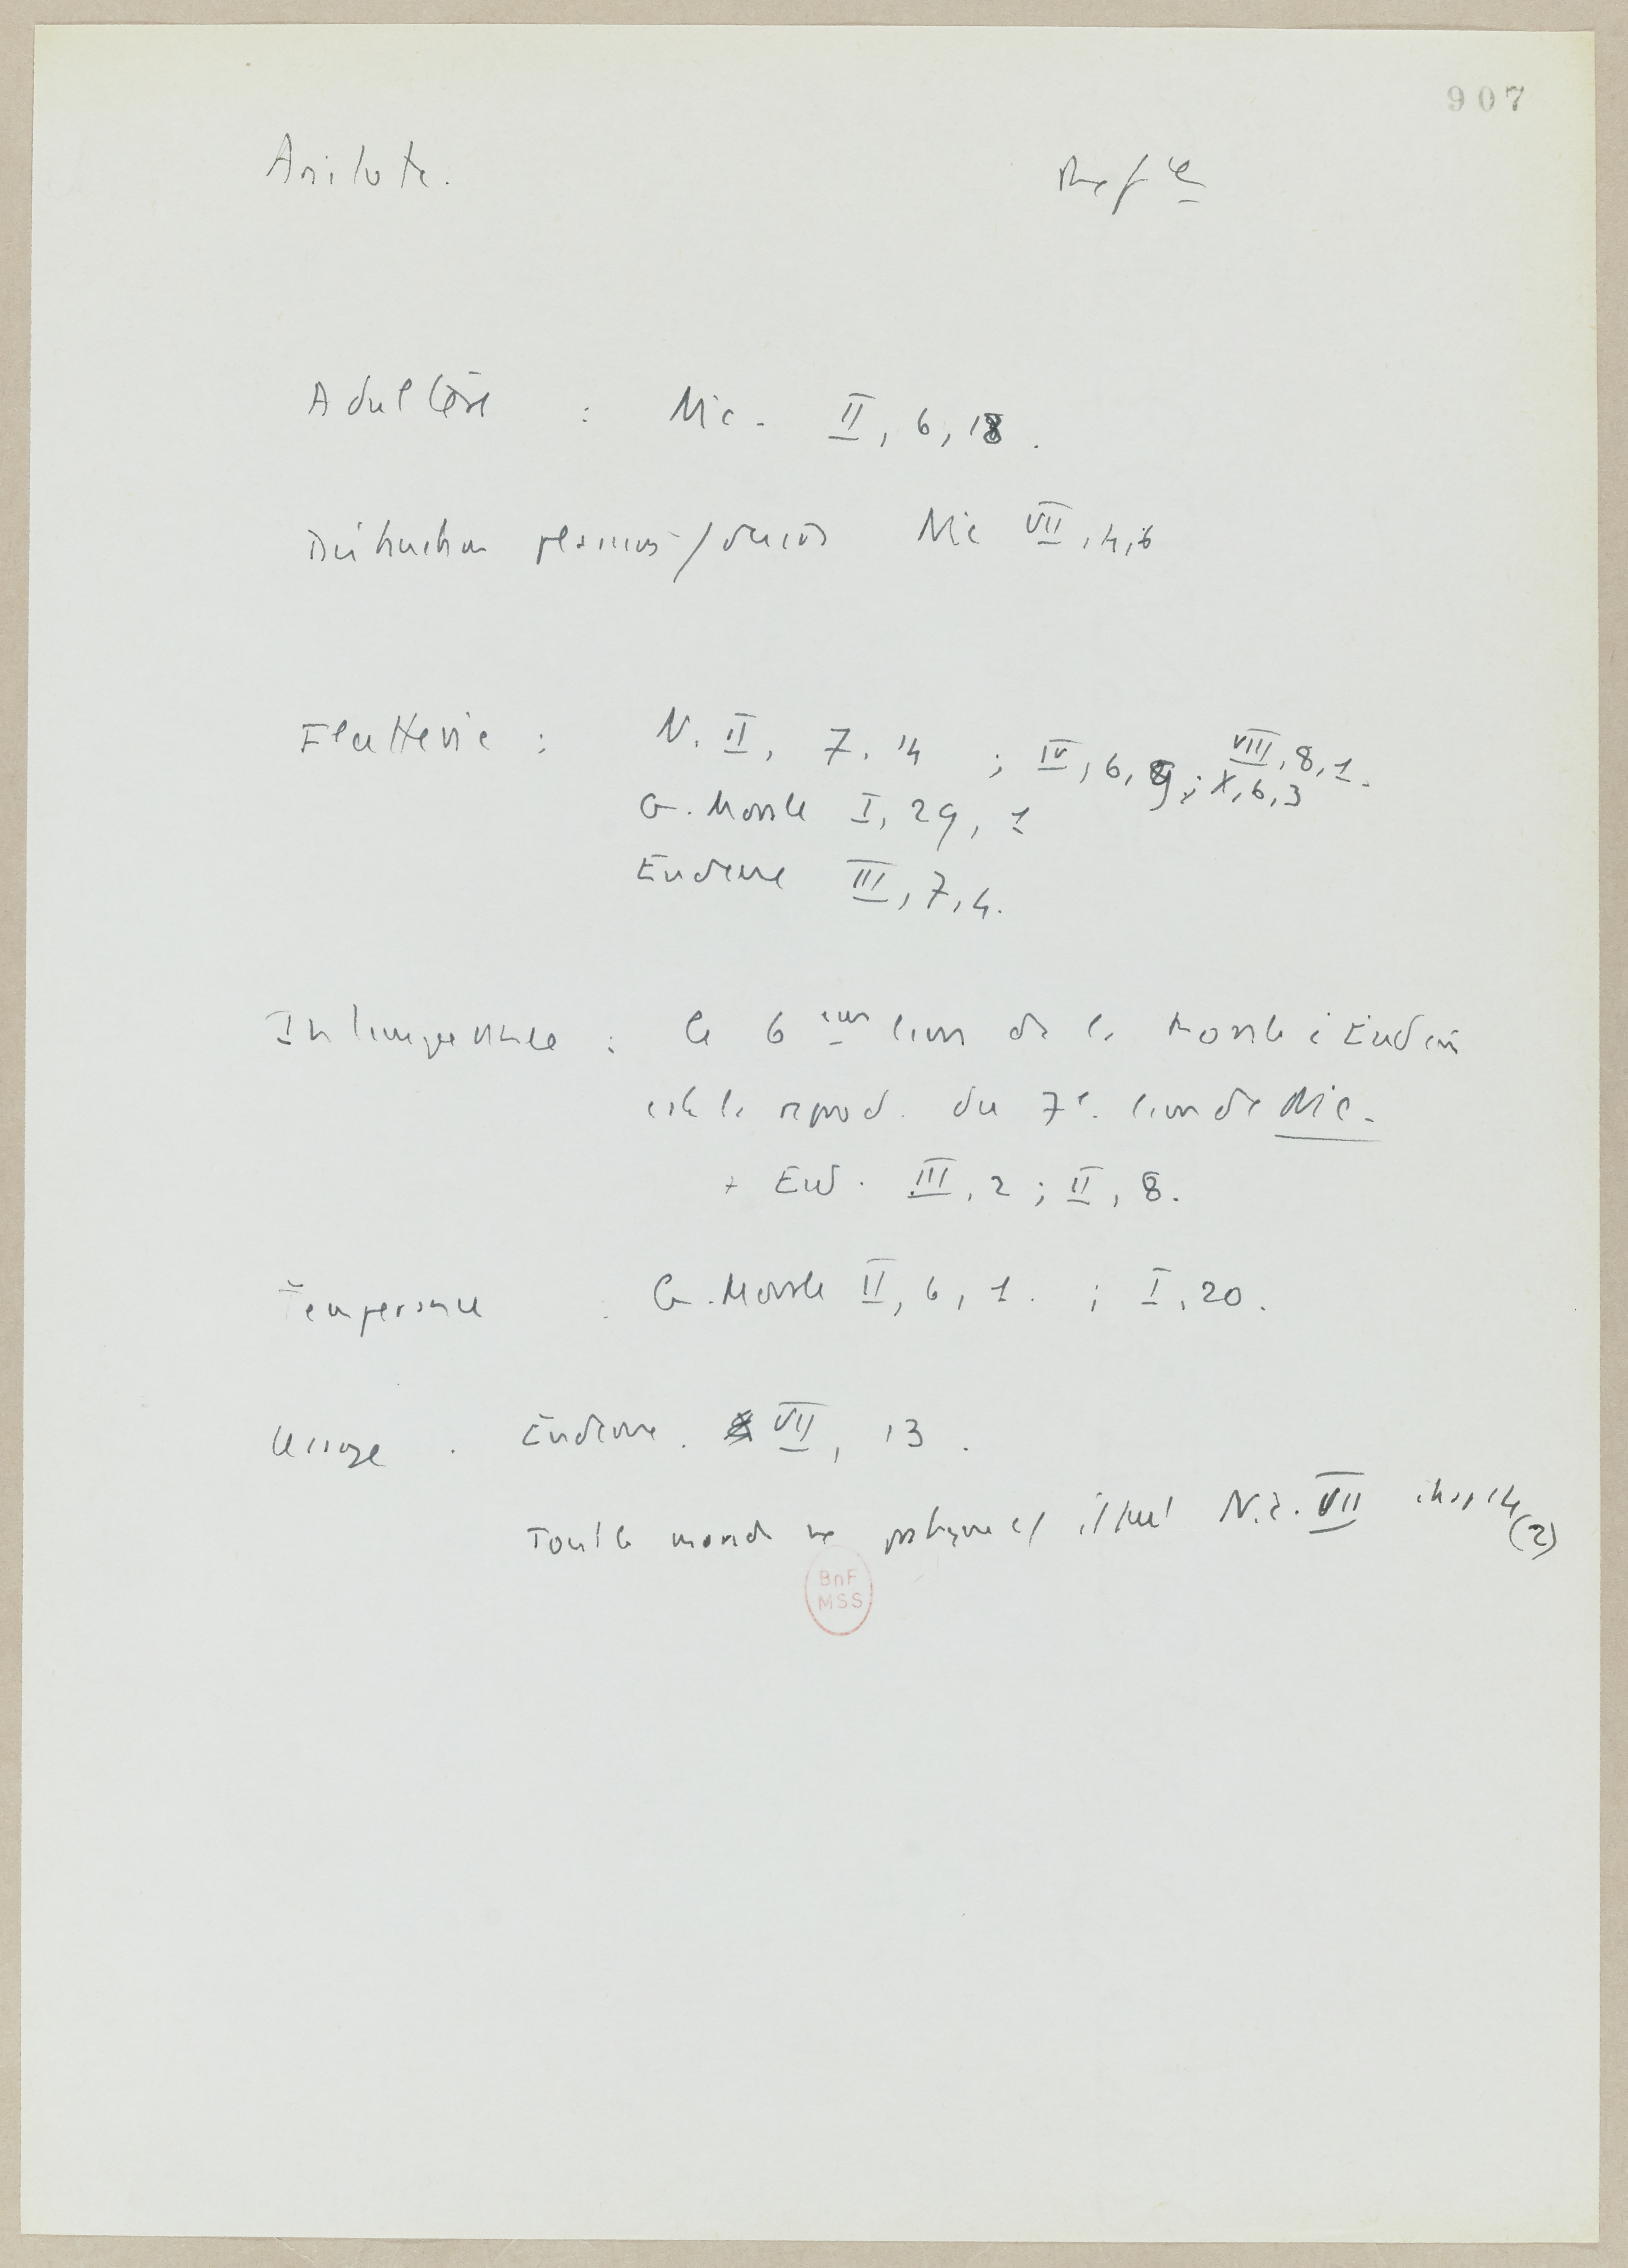 907
Aristote. Ref ce
Adultère : Nic. II, 6, 18.
Distinction plaisirs/désirs Nic VII, 4, 6
Flatterie : N. II, 7. 14 ; IV, 6, 9 ; VIII, 8, 1.
X, 6, 3
G. Morale I, 29, 1
Eudème III, 7, 4.
Intempérance : le 6 ème livre de la Morale à Eudème
est la reprod. du 7e. livre de Nic.
+ Eud. III, 2 ; II, 8.
Tempérance : G. Morale II, 6, 1. ; I, 20.
Usage . Eudème. VII, 13.
Tout le monde ne pratique il faut N.è. VII chap 14 (2)
BnF
MSS